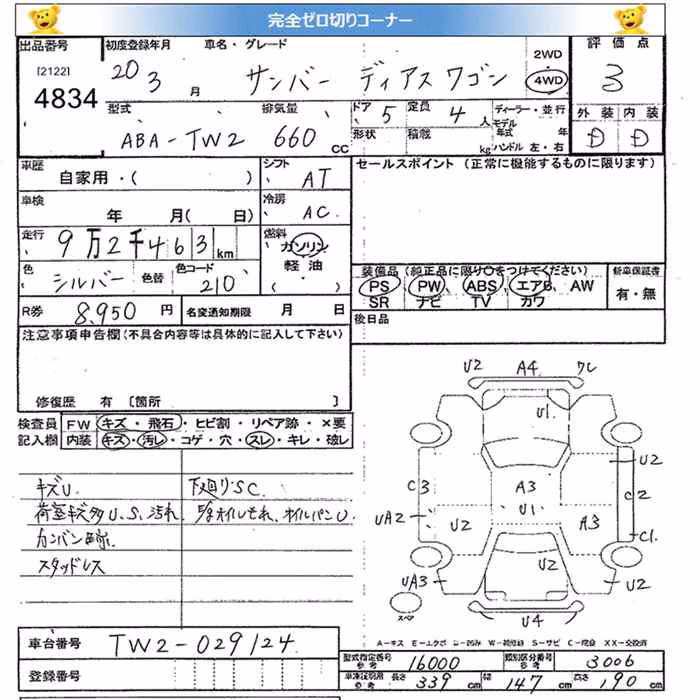 完全ゼロ切りコーナー
出品番号
[2122]
4834
初度登録年月 車名・グレード
20 3 月 サンバー ディアス ワゴン
2WD
4WD
評価点
3
型式 排気量
ABA-TW2 660 cc
ドア 5 定員 4 人
形状 積載 kg
ディーラー・並行
モデル
年式 年
ハンドル 左・右
外装 内装
D D
車歴
自家用・( )
シフト
AT
セールスポイント (正常に機能するものに限ります)
車検
年 月( 日)
冷房
AC
走行
9万2千463 km
燃料
ガソリン
軽油
( ・ )
色
シルバー 色替 色コード 210
装備品 (純正品に限り○をつけてください)
PS PW ABS エアB AW
SR ナビ TV カワ
新車保証書
有・無
R券 8,950 円 名変通知期限 月 日
後日品
注意事項申告欄(不具合内容等は具体的に記入して下さい)
修復歴 有 〔箇所 〕
検査員
記入欄
FW キズ・飛石・ヒビ割・リペア跡・×要
内装 キズ・汚レ・コゲ・穴・スレ・キレ・破レ
キズU
荷室キズ多U、S、汚れ
カンバン跡
スタッドレス
下廻りSC
オイルもれ、オイルパンU
U2 A4 ワレ
U1
U2
C3 A3 C2
U1
UA2 U2 A3 C1
UA3 U2 U2
スペア
U4
A-キズ E-エクボ U-凹み W-補修跡 S-サビ C-腐食 XX-交換済
車台番号 TW2-029124
登録番号
型式指定番号 参考 16000 類別区分番号 参考 3006
車検証明用 参考 長さ 339 cm 幅 147 cm 高さ 190 cm